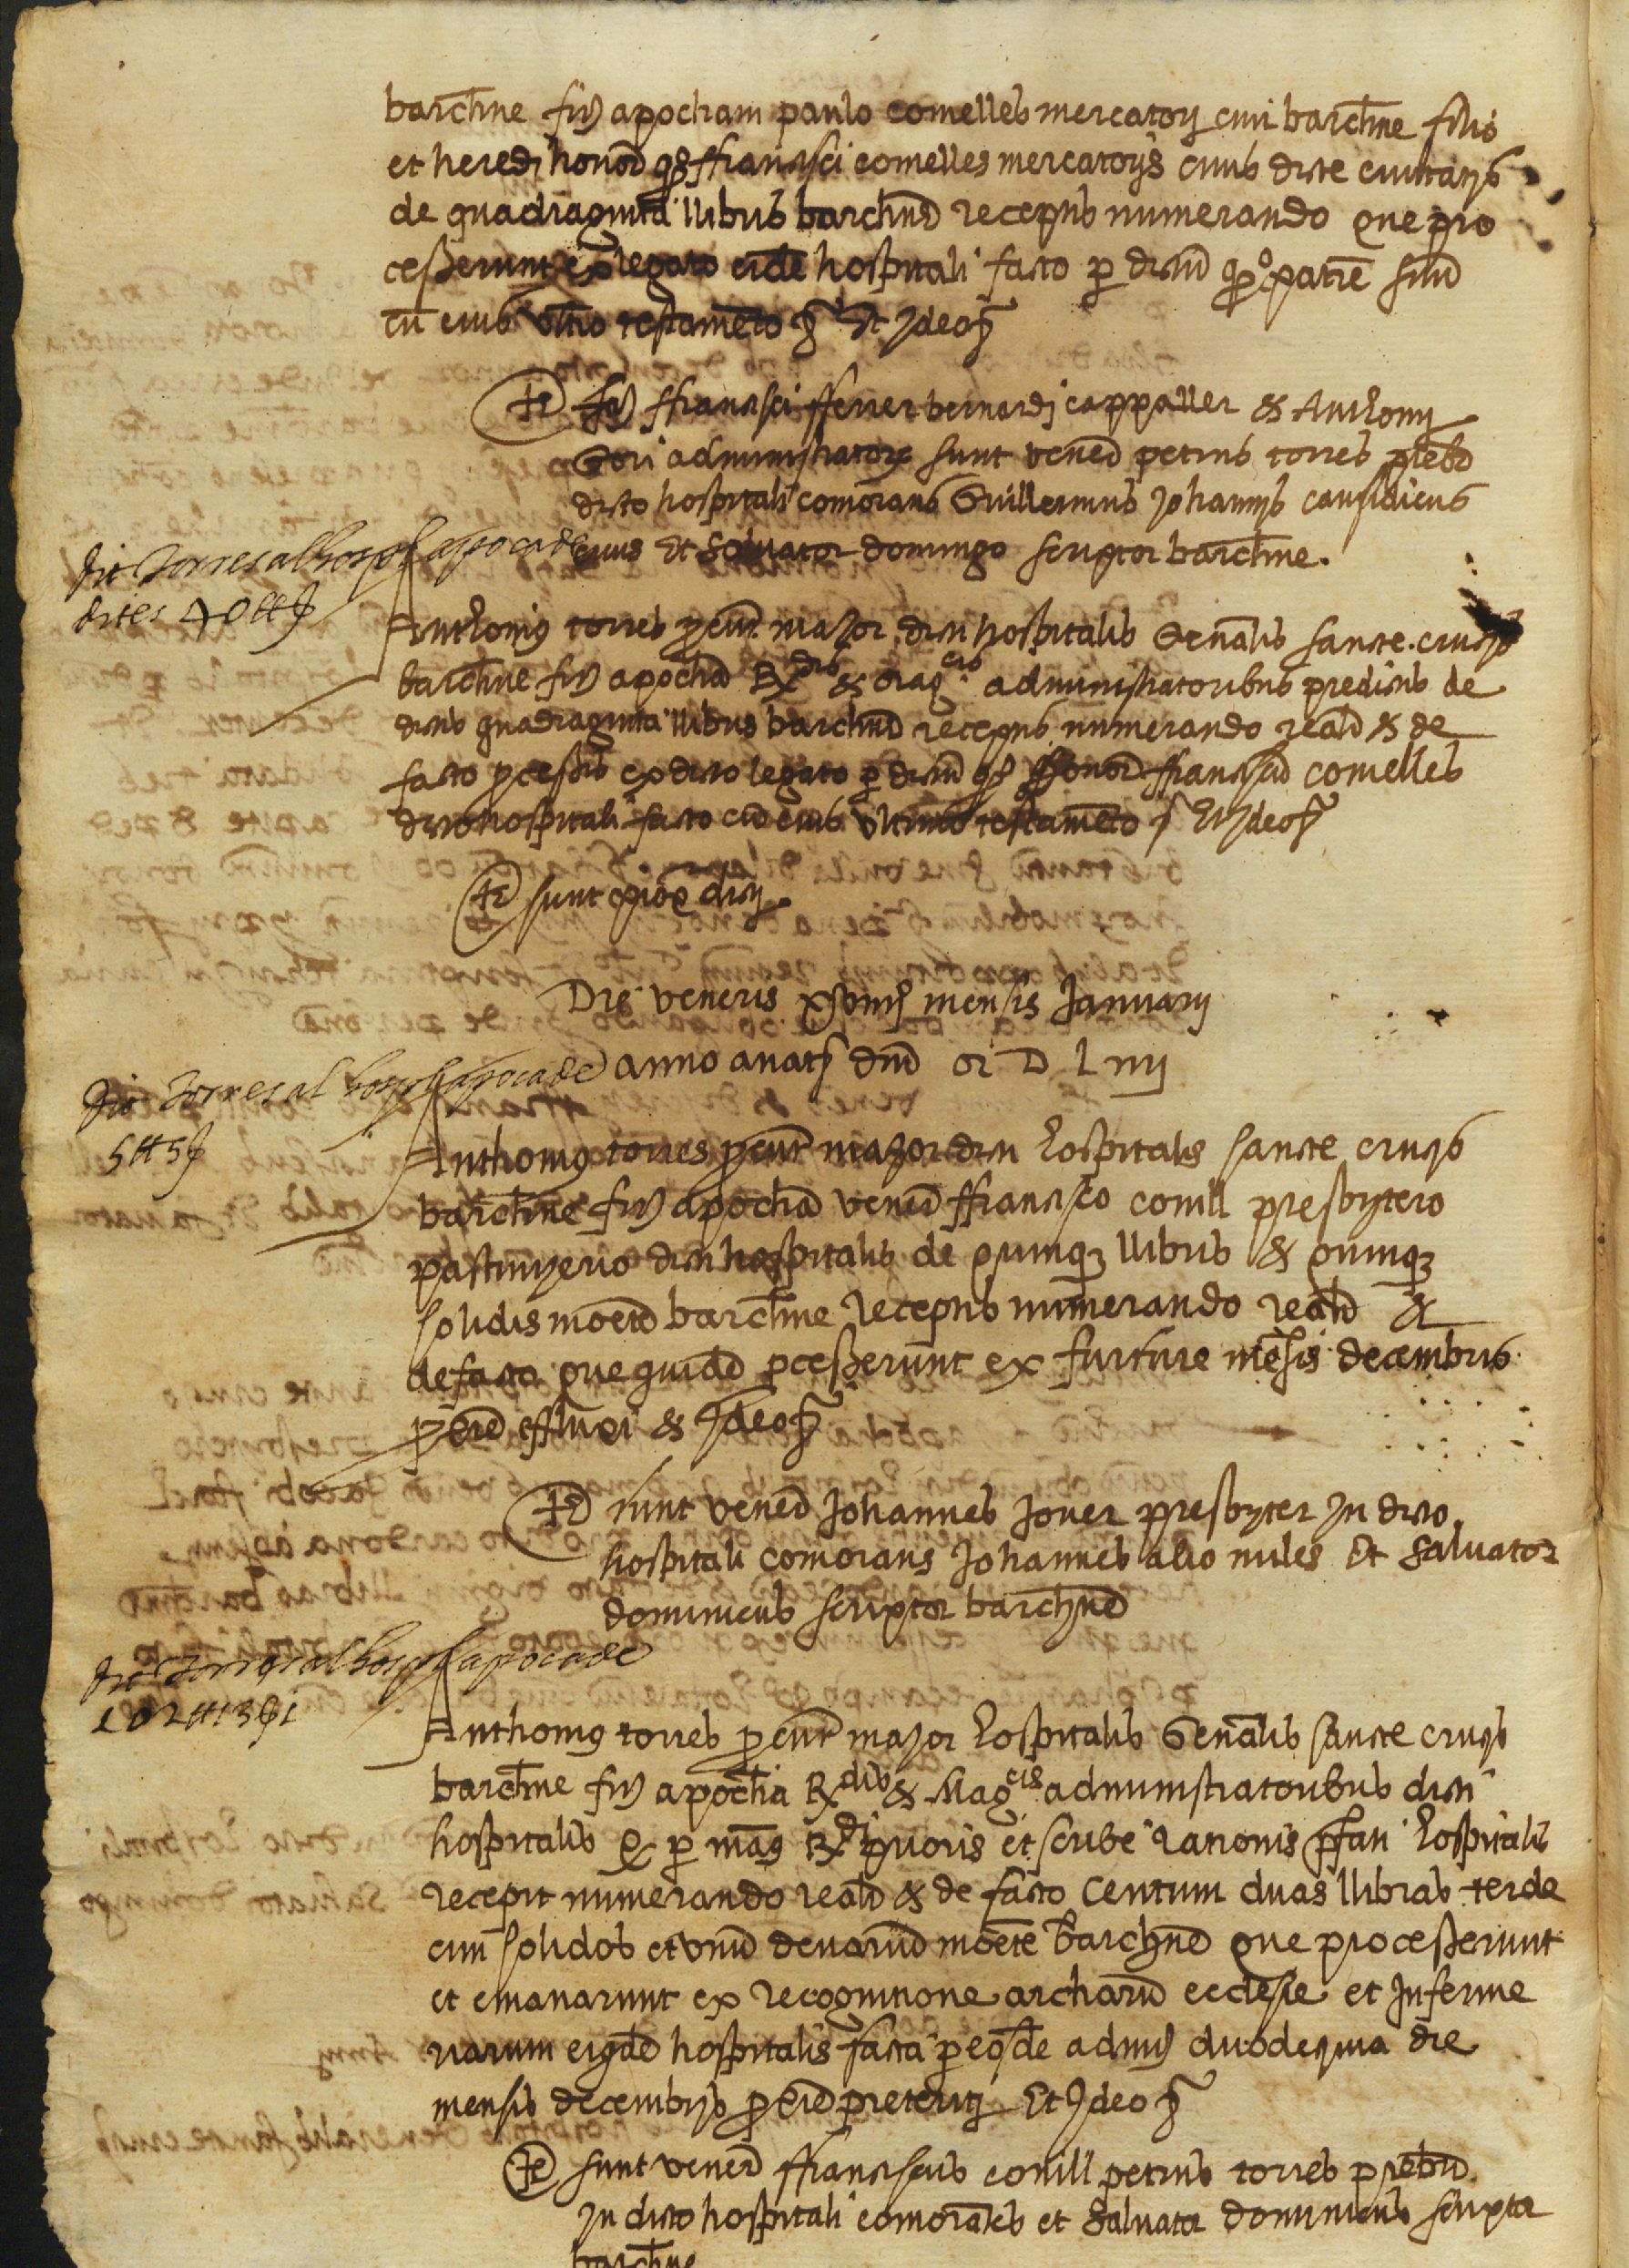 barchne fir apocham paulo comelles mercatorj ciui barchne filio
et heredj honor qo ffrancisci comelles mercatorjs ciuis dicte ciuitatis
de quadraginta llibris barchne receptis numerando que pro
cesserunt ex legato eidem hospitali facto per dictum qo patrem suum
cum eius ultio testameto & Et Ideo &
Te fir ffrancisci fferrer bernardj cappaller & Anthonij
Gori administratorum sunt vener petrus torres prebr
dicto hospitali comorans Guillermus Johannis causidicus
ciuis Et Saluator domingo scriptor barchne.
fir torres al hospl apoca de
dites 40 ll s
Anthonius torres procur major dicti hospitalis Genalis sancte crucis
barchne fir apocha Rdis & Magcis administratoribus predictis de
dictis quadraginta llibris barchne receptis numerando realr & de
facto pcessis ex dicto legato per dictum qo honor ffranciscum comelles
dicto hospitali facto cum eius vltimo testameto & Et Ideo &
Te sunt proxe dicti.
Die veneris xviiij mensis Januarij
anno a nat dni M D L iiij
fir torres al hospl apoca de
5 ll 5 s
Anthonius torres procur major dicti hospitalis sancte crucis
barchne fir apocha vener ffrancisco conill presbytero
pastinyerio dicti hospitalis de quinque llibris & quinque
solidis monete barchne receptis numerando realr &
de facto que quidem pcesserunt ex furfure mensis decembris
proxime effluxi & Ideo &
Te sunt vener Johannes Jouer presbyter in dicto
hospitali comorans Johannes alio miles Et Saluator
dominicus scriptor barchne
fir torres al hospl apoca de
102 ll 13 s 1
Anthonius torres procur major hospitalis Genalis sancte crucis
barchne fir apocha Rdis & Magcis administratoribus dicti
hospitalis & per mag Rdi priuoris et scribe rationis pfati hospitalis
recepit numerando realr & de facto Centum duas llibras terde
cim solidos et vnum denarium monete barchne que processerunt
et emanarunt ex recognitione archarum ecclesie et Inferme
riarum eiusde hospitalis facta per eosde admi duodecima die
mensis decembris proxime preteriti Et Ideo &
Te sunt vener ffranciscus conill petrus torres prebri
In dicto hospitali comorates et Saluator dominicus scriptor
barchne